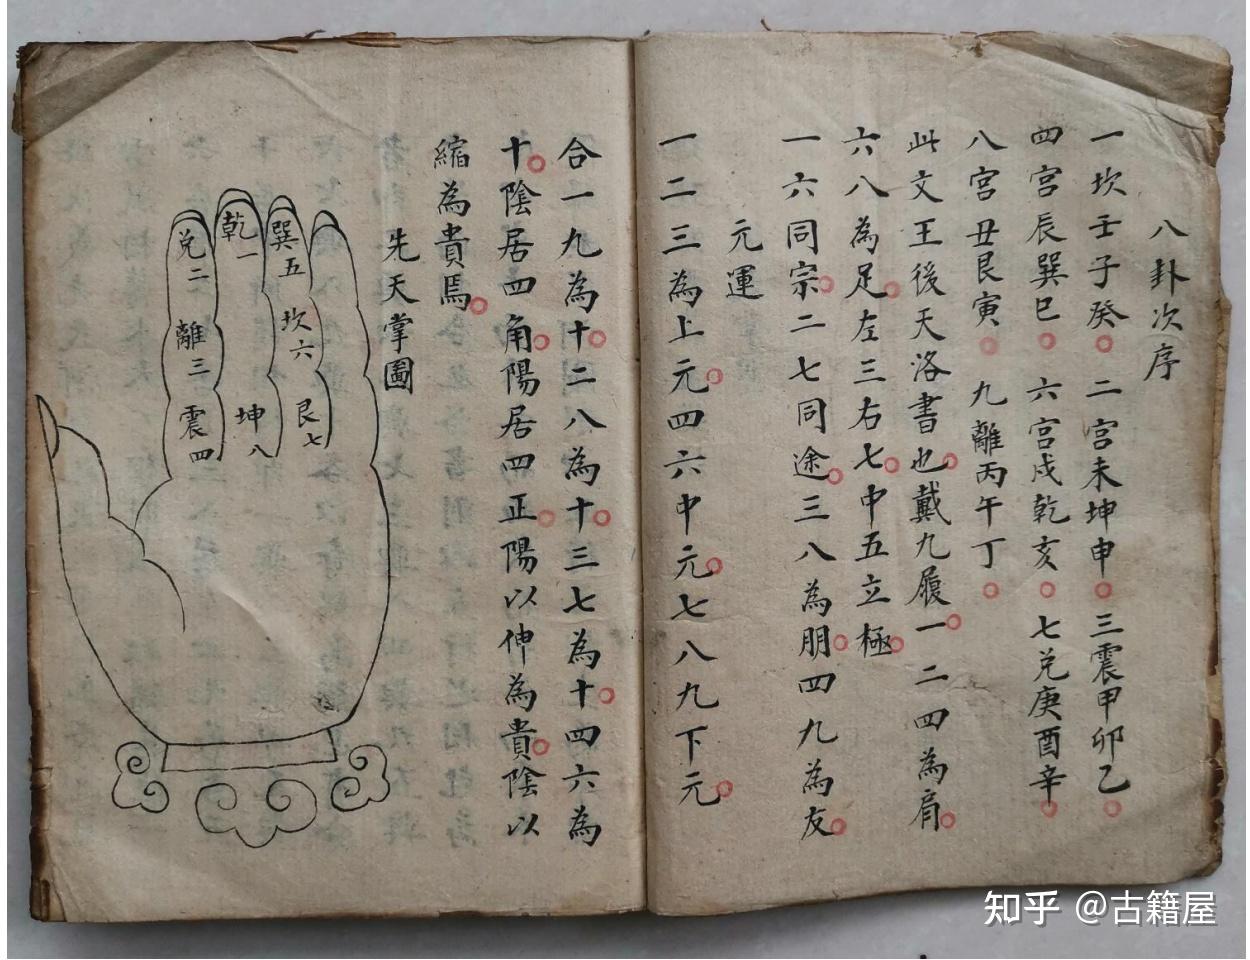 八卦次序
一坎壬子癸 二宮未坤申 三震甲卯乙
四宮辰巽巳 六宮戍乾亥 七兌庚酉辛
八宮丑艮寅 九離丙午丁
此文王後天洛書也戴九履一二四為肩
六八為足左三右七中五立極
一六同宗二七同途三八為朋四九為友
元運
一二三為上元四六中元七八九下元
合一九為十二八為十三七為十四六為
十陰居四角陽居四正陽以伸為貴陰以
縮為貴焉
先天掌圖
巽五
坎六
艮七
乾一
坤八
兌二
離三
震四
知乎 @古籍屋